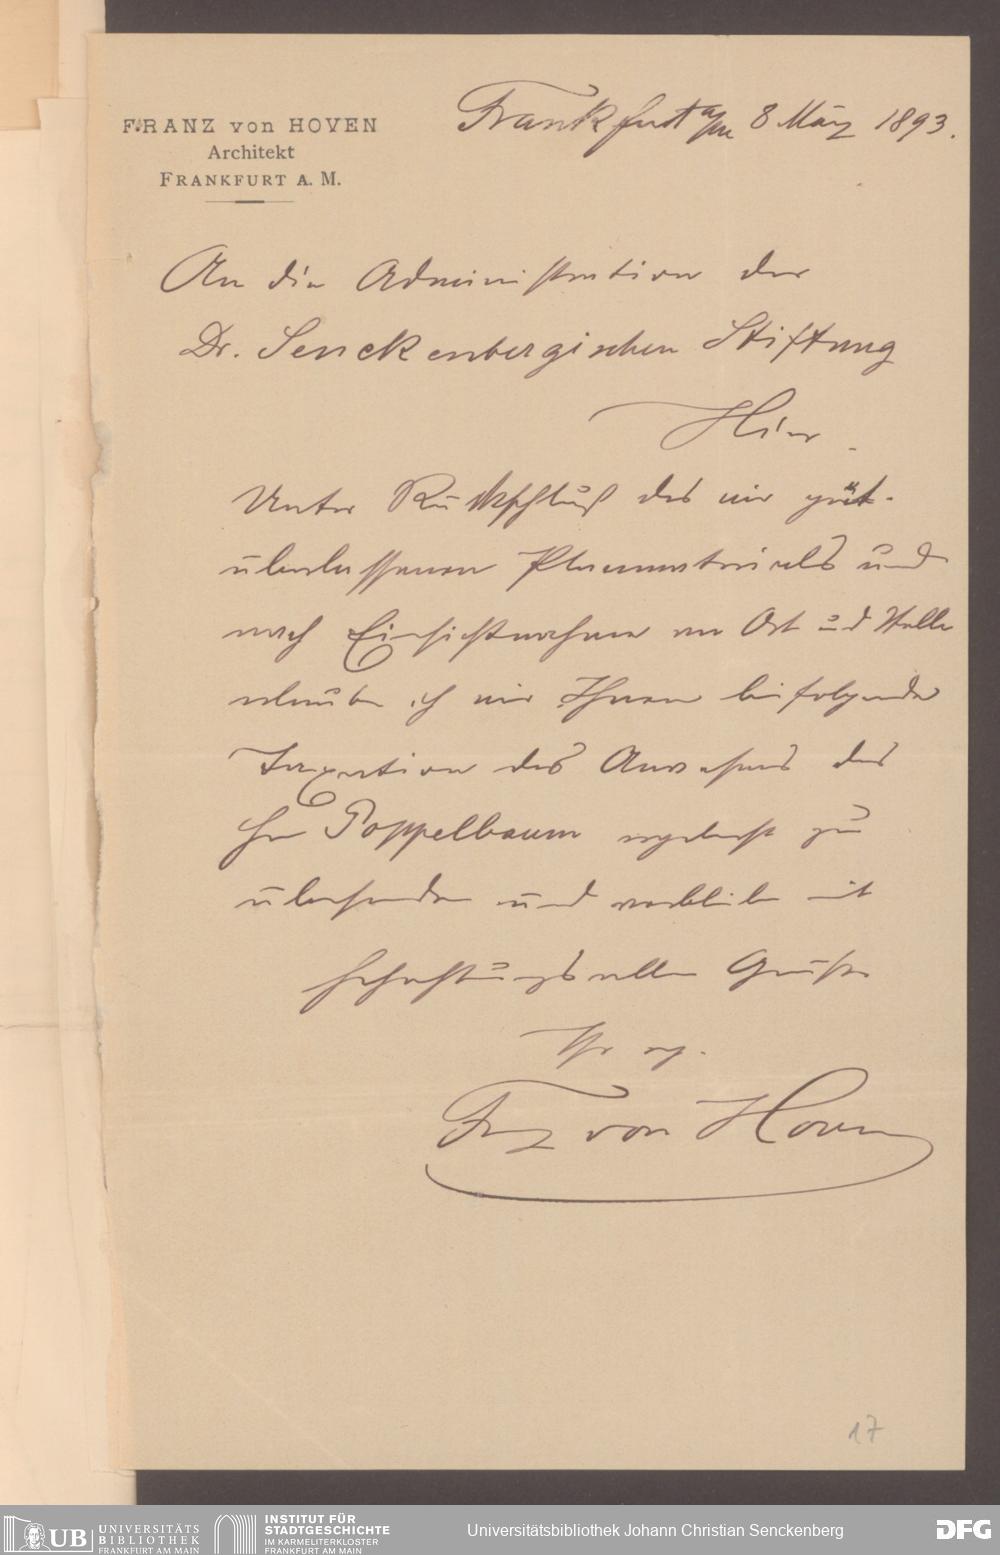 FRANZ von HOVEN
Architekt
FRANKFURT A. M.
Frankfurt a/m 8 März 1893.
An die Administration der
Dr. Senckenbergischen Stiftung
Hier
Unter Rückschluß des mir güt.
überlassenen Planmaterials und
nach Einsichtnahme an Ort und Stelle
erlaube ich mir Ihnen beifolgende
Taxation des Anwesens des
Hn Poppelbaum ergebenst zu
übersenden und verbleibe mit
hochachtungsvollem Gruße
Ihr erg.
Frz von Hoven
17
UB UNIVERSITÄTS
BIBLIOTHEK
FRANKFURT AM MAIN
INSTITUT FÜR
STADTGESCHICHTE
IM KARMELITERKLOSTER
FRANKFURT AM MAIN
Universitätsbibliothek Johann Christian Senckenberg
DFG